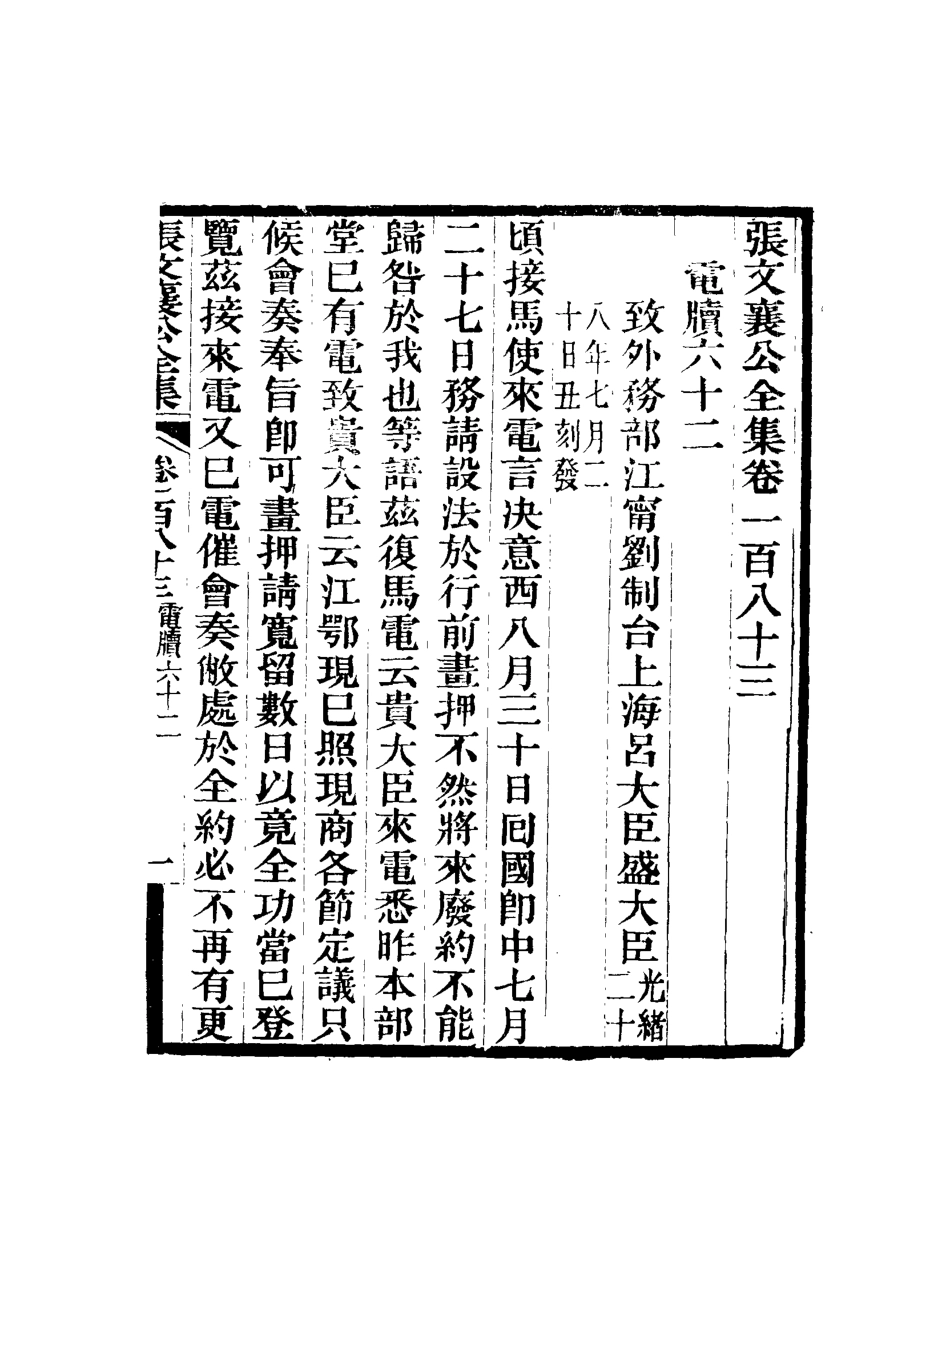 張文襄公全集卷一百八十三
電牘六十二
致外務部江甯劉制台上海呂大臣盛大臣光緒二十
八年七月二十日丑刻發
頃接馬使來電言決意西八月三十日囘國卽中七月
二十七日務請設法於行前畫押不然將來廢約不能
歸咎於我也等語茲復馬電云貴大臣來電悉昨本部
堂已有電致貴大臣云江鄂現已照現商各節定議只
候會奏奉旨卽可畫押請寬留數日以竟全功當已登
覽茲接來電又已電催會奏敝處於全約必不再有更
張文襄公全集 卷一百八十三 電牘六十二 一